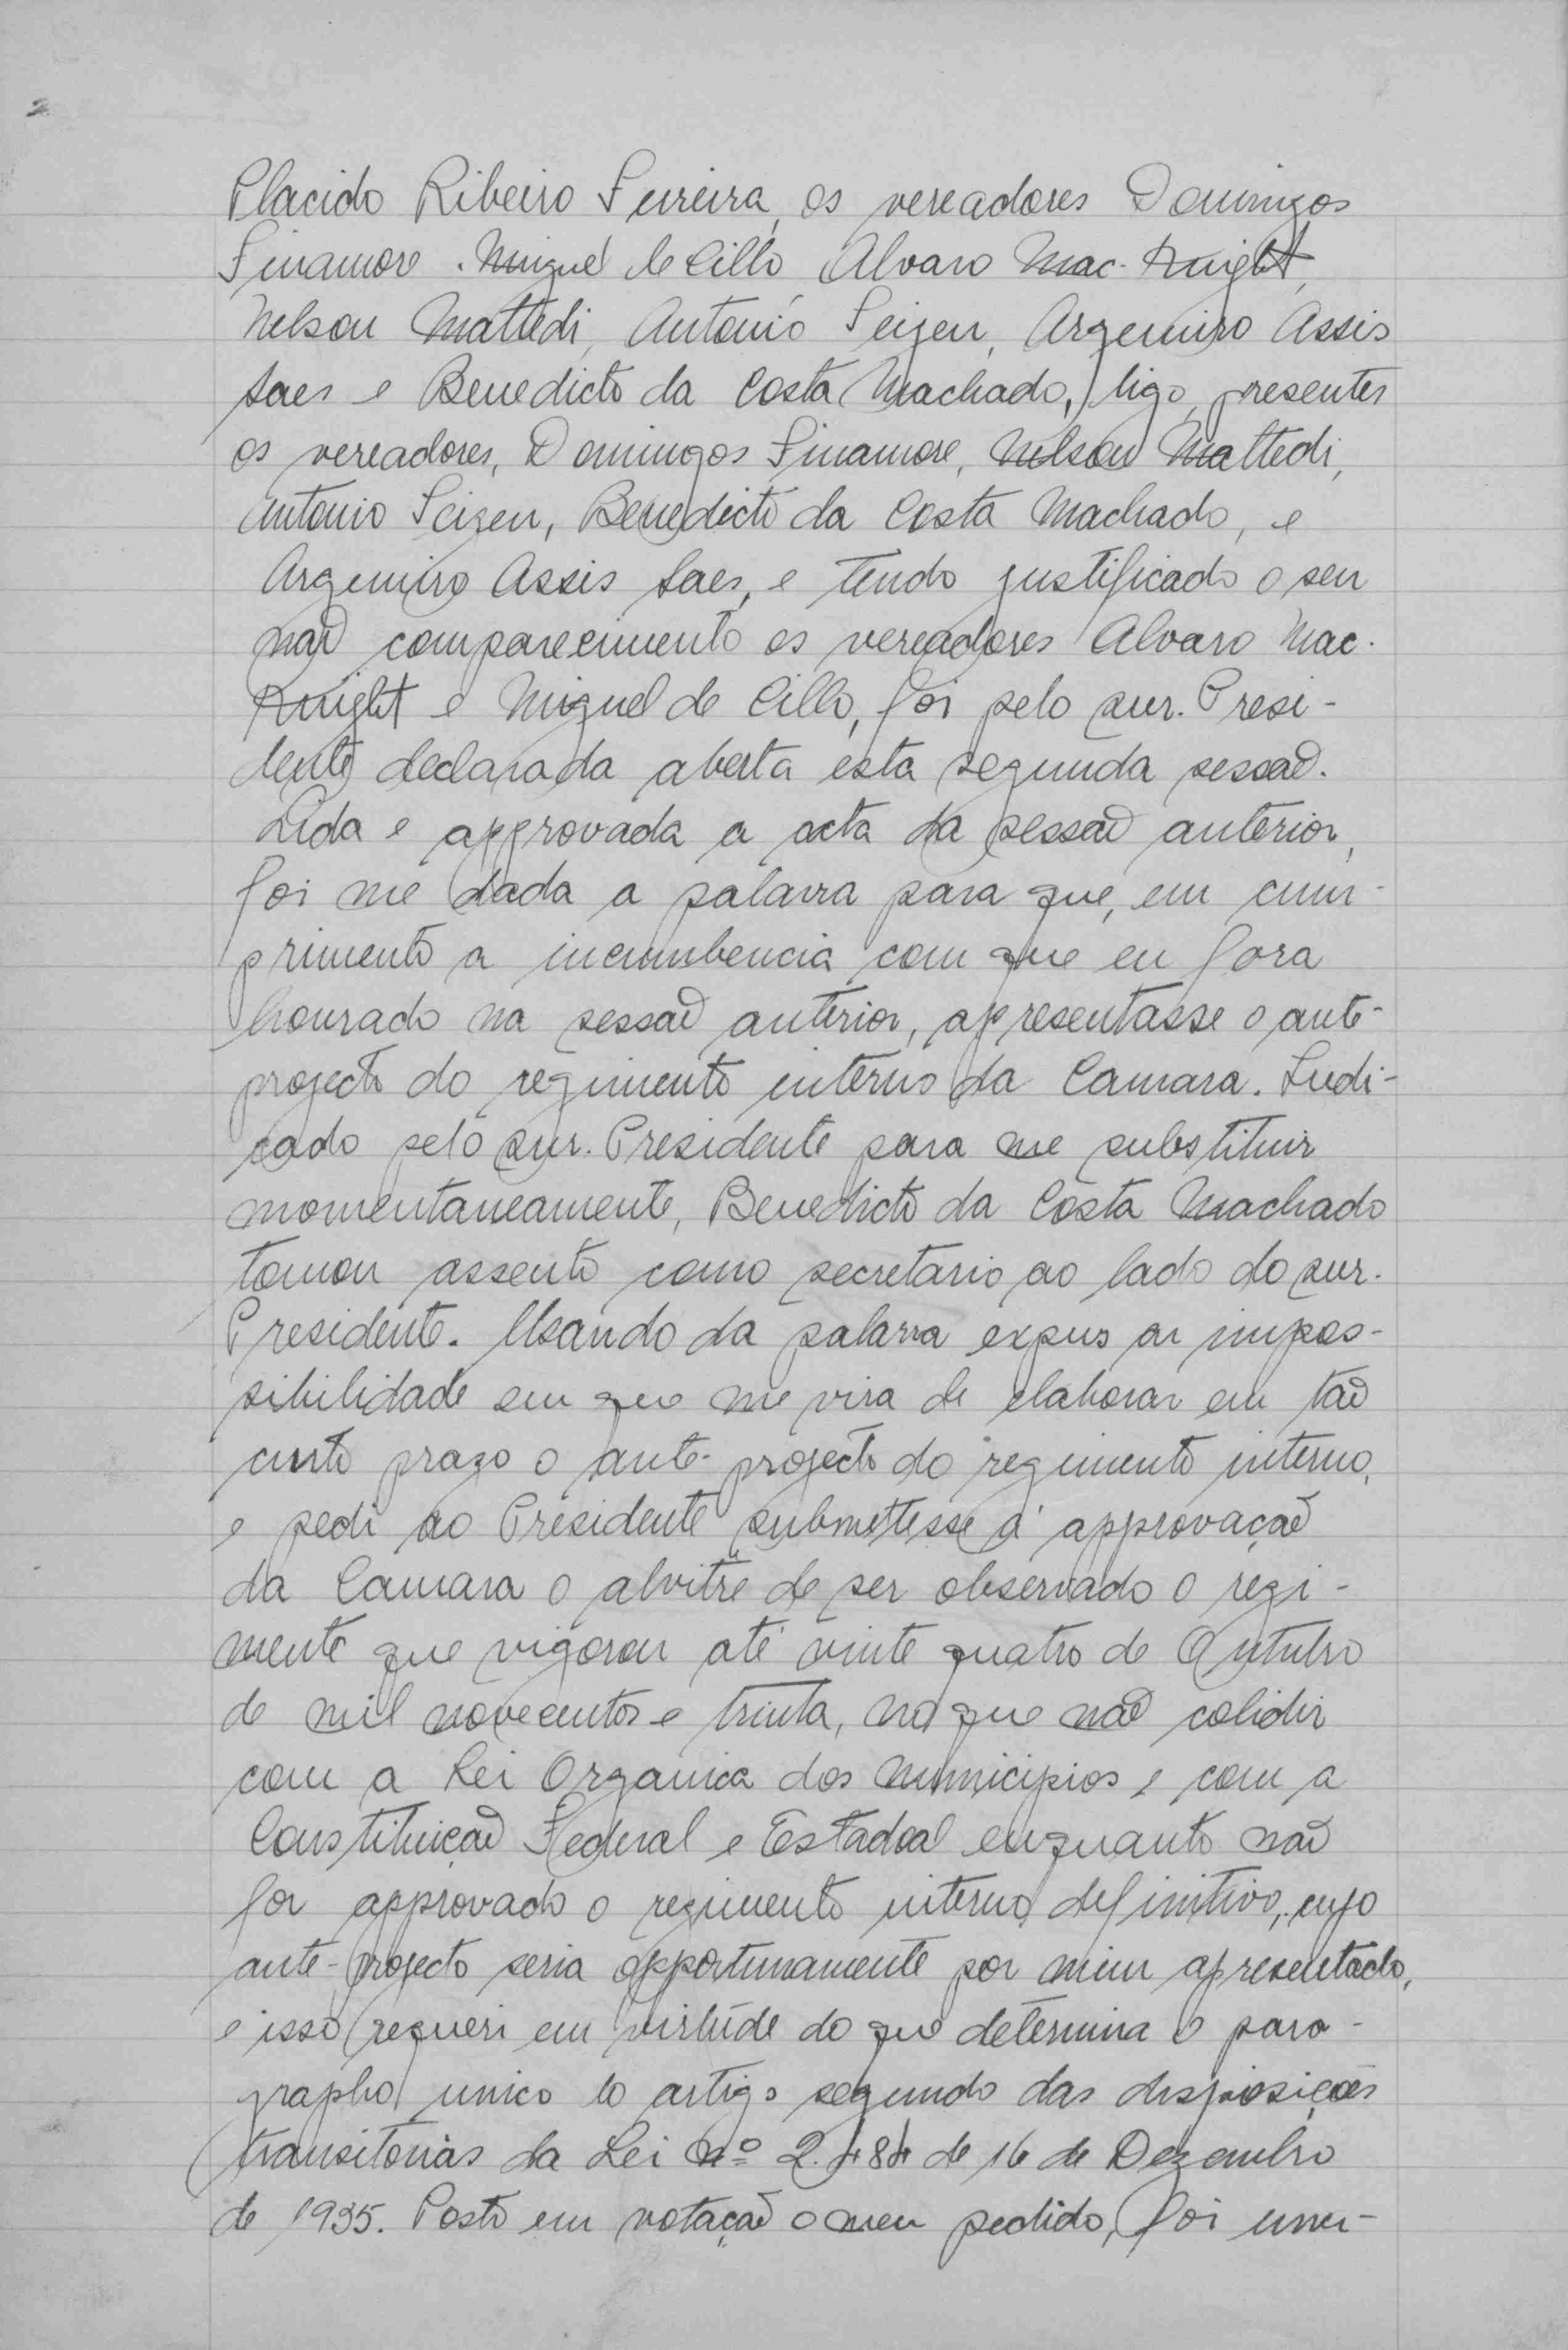 Placido Ribeiro Ferreira, os vereadores Domingos
Finamore. Miguel de Cillo Alvaro Mac-Knight,
Nelson Mattedi, Antonio Seizen, Argemiro Assis
Saes e Benedicto da Costa Machado, digo, presentes
os vereadores, Domingos Finamore, Nelson Mattedi,
Antonio Seizen, Benedicto da Costa Machado, e
Argemiro Assis Saes, e tendo justificado o seu
não comparecimento os vereadores Alvaro Mac-
Knight e Miguel de Cillo, foi pelo snr. Presi-
dente declarada aberta esta segunda sessão.
Lida e approvada a acta da sessão anterior,
foi me dada a palavra para que, em cum-
primento a incumbencia com que eu fora
honrado na sessão anterior, apresentasse o ante-
projecto do regimento interno da Camara. Indi-
cado pelo snr. Presidente para me substituir
momentaneamente, Benedicto da Costa Machado
tomou assento como secretario ao lado do snr.
Presidente. Usando da palavra expus a impos-
sibilidade em que me vira de elaborar em tão
curto prazo o ante-projecto do regimento interno,
e pedi ao Presidente submettesse á approvação
da Camara o alvitre de ser observado o regi-
mento que vigorou até vinte quatro de Outubro
de mil novecentos e trinta, no que não colidir
com a Lei Organica dos Municipios e com a
Constituição Federal e Estadoal enquanto não
for approvado o regimento interno definitivo, cujo
ante-projecto seria opportunamente por mim apresentado,
e isso requeri em virtude do que determina o para-
grapho unico do artigo segundo das disposições
transitorias da Lei nº 2.484 de 16 de Dezembro
de 1935. Posto em votação o meu pedido, foi una-